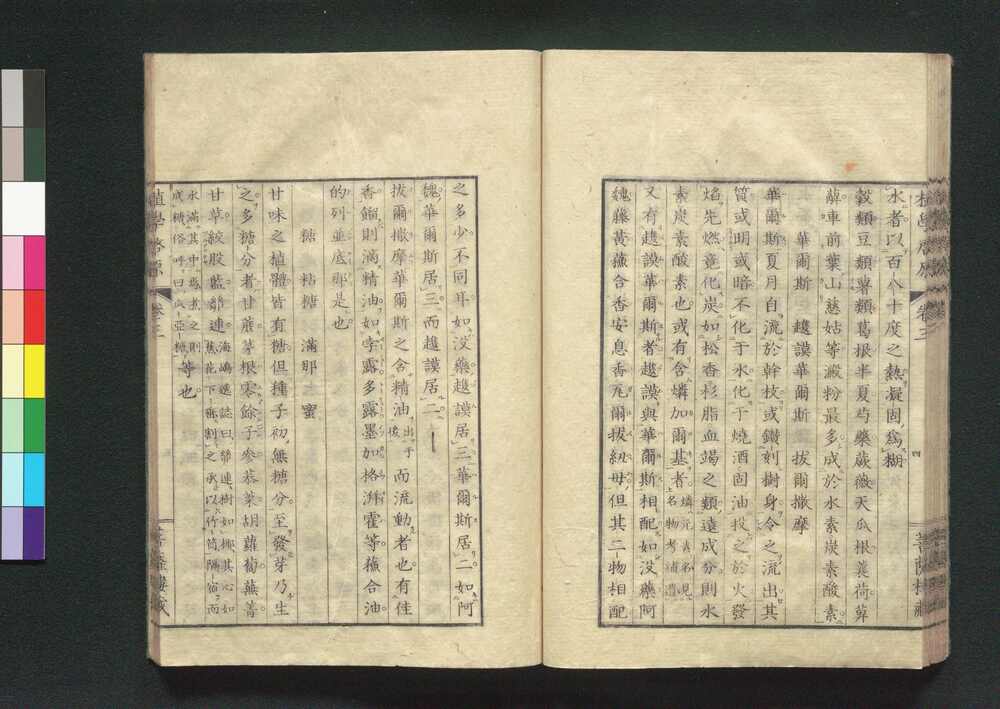 水者以百个十度之熱凝固為糊
穀類豆類薯類葛根半夏芍藥蕨薇天瓜根蘘荷萆
薢車前葉山慈姑等澱粉最多成於水素炭素酸素
華爾斯 趓謨華爾斯 拔爾撒摩
華爾斯夏月自流於幹枝或鑚刺樹身令之流出其
質或明或暗不化于水化于燒酒固油投之於火發
焰先燃竟化炭如松香杉脂血竭之類遠成分則水
素炭素酸素也或有含燐加爾基者
又有趓謨華爾斯者趓謨與華爾斯相配如没藥阿
魏藤黃蘓合香安息香瓦爾拔紉毋但其二物相配
之多少不同耳如没藥趓謨居三華爾斯居二如阿
魏華爾斯居三而趓謨居二
拔爾撒摩華爾斯之含精油出于後而流動者也有佳
香餾則滴精油如孛露多露墨加格湃霍等蘓合油
的列並底那是也
糖 粘糖 滿那 蜜
甘味之植體皆有糖但種子初無糖分至發芽乃生
之多糖分者甘蔗芽根零餘子參菾菜胡蘿蔔蕪菁
甘草絞股藍鄰連
等也
植學啓原 卷三
四
菩薩樓藏